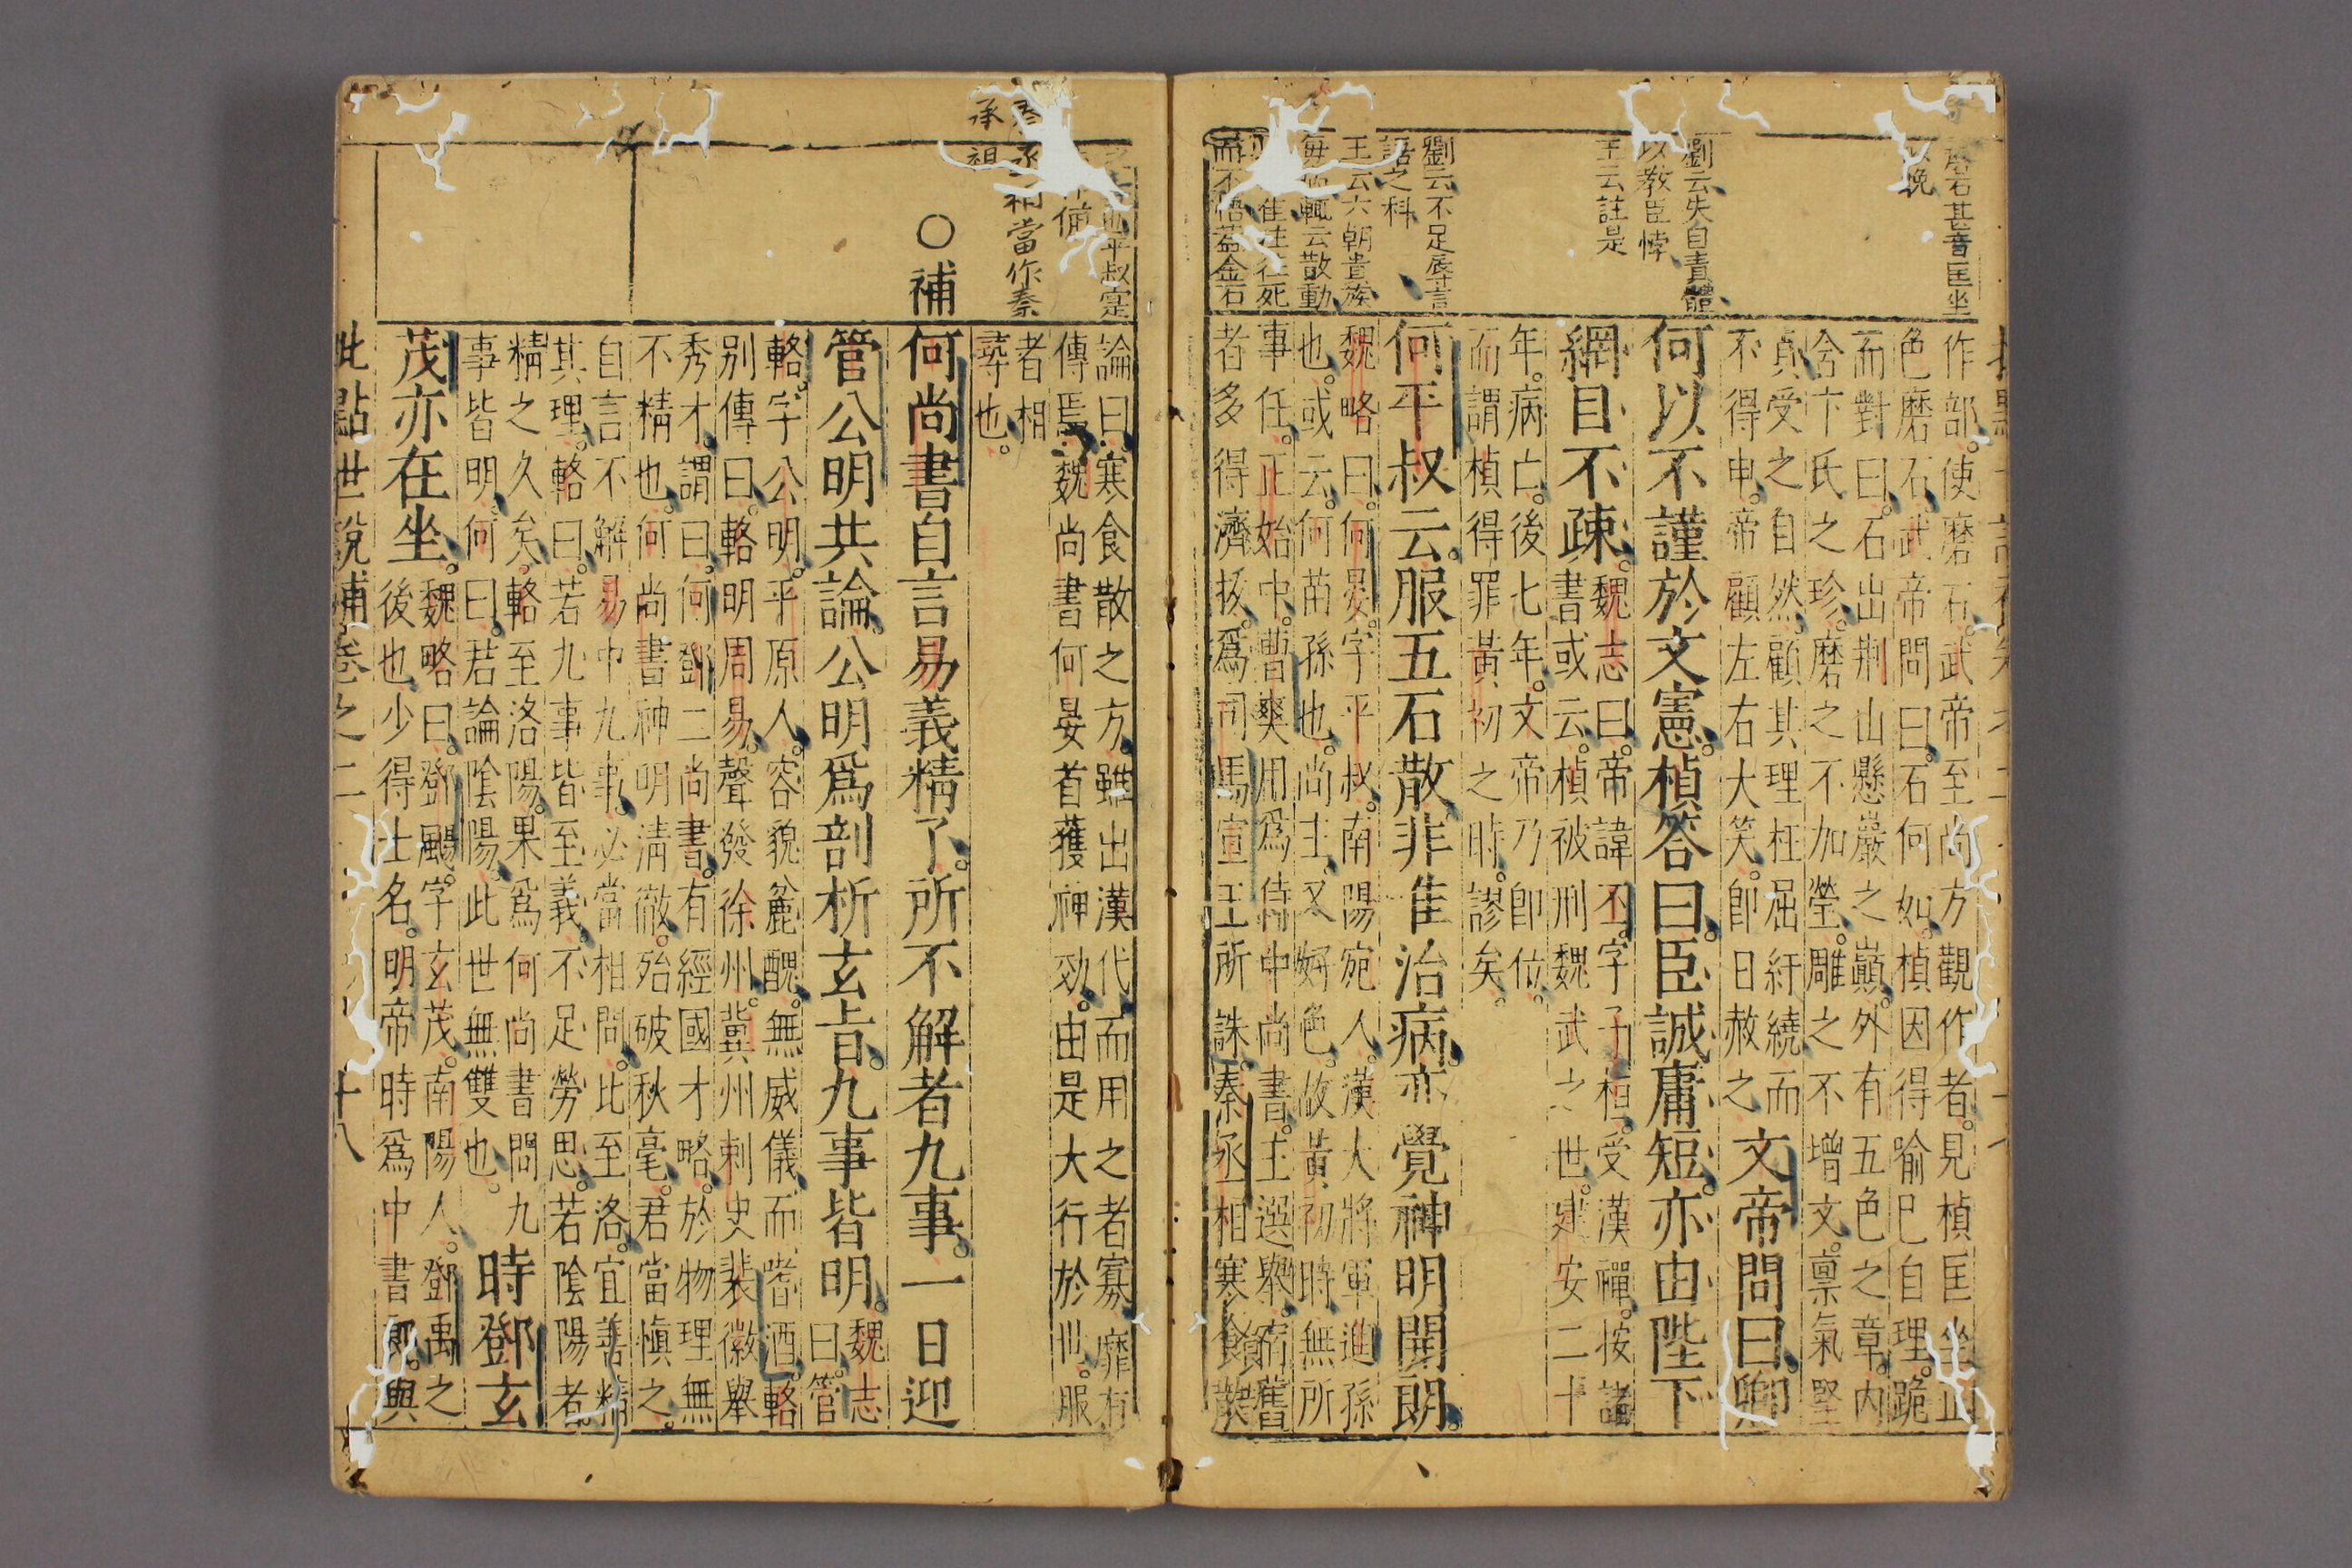 磨石甚奇匡坐
晚
劉云失自責體
以教臣悖
王云註是
劉云不足辱言
語之科
王云六朝貴族
輒云散動
往往死
而不悟蓋金石
作部。使磨石。武帝至尚方觀作者。見楨匡坐正
色磨石。武帝問曰。石何如。楨因得喻己自理。跪
而對曰。石出荆山懸巖之巔。外有五色之章。内
含卞氏之珍。磨之不加瑩。雕之不增文。禀氣堅
貞。受之自然。顧其理枉屈紆繞而
不得申。帝顧左右大笑。即日赦之 文帝問曰。卿
何以不謹於文憲。楨答曰。臣誠庸短。亦由陛下
網目不疎。魏志曰。帝諱丕。字子桓。受漢禪。按諸
書或云。楨被刑魏武之世。建安二十
年。病亡。後七年。文帝乃即位。
而謂楨得罪黃初之時。謬矣。
何平叔云。服五石散。非隹治病。亦覺神明開朗。
魏略曰。何晏。字平叔。南陽宛人。漢大將軍進孫
也。或云。何苗孫也。尚主。又好色。故黃初時無所
事任。正始中。曹爽用爲侍中尚書。主選舉。宿舊
者多得濟拔。爲司馬宣王所誅。秦丞相寒食散
平叔寔
備
秦丞相當作秦
承祖
論曰。寒食散之方。雖出漢代。而用之者寡。靡有
傳焉。魏尚書何晏首獲神効。由是大行於世。服
者相
尋也。
○補
何尚書自言易義精了。所不解者九事。一日迎
管公明共論。公明爲剖析玄旨。九事皆明。魏志
曰。管
輅。字公明。平原人。容貌麄醜。無威儀。而嗜酒。輅
别傳曰。輅明周易。聲發徐州。冀州刺史裴徽舉
秀才。謂曰。何鄧二尚書。有經國才略。於物理無
不精也。何尚書神明清徹。殆破秋毫。君當愼之。
自言不解易中九事。必當相問。比至洛。宜善精
其理。輅曰。若九事皆至義。不足勞思。若陰陽者。
精之久矣。輅至洛陽。果爲何尚書問九
事皆明。何曰。君論陰陽。此世無雙也。 時鄧玄
茂亦在坐。魏略曰。鄧颺。字玄茂。南陽人。鄧禹之
後也。少得士名。明帝時爲中書郎。與
批點世說補卷之二
十八